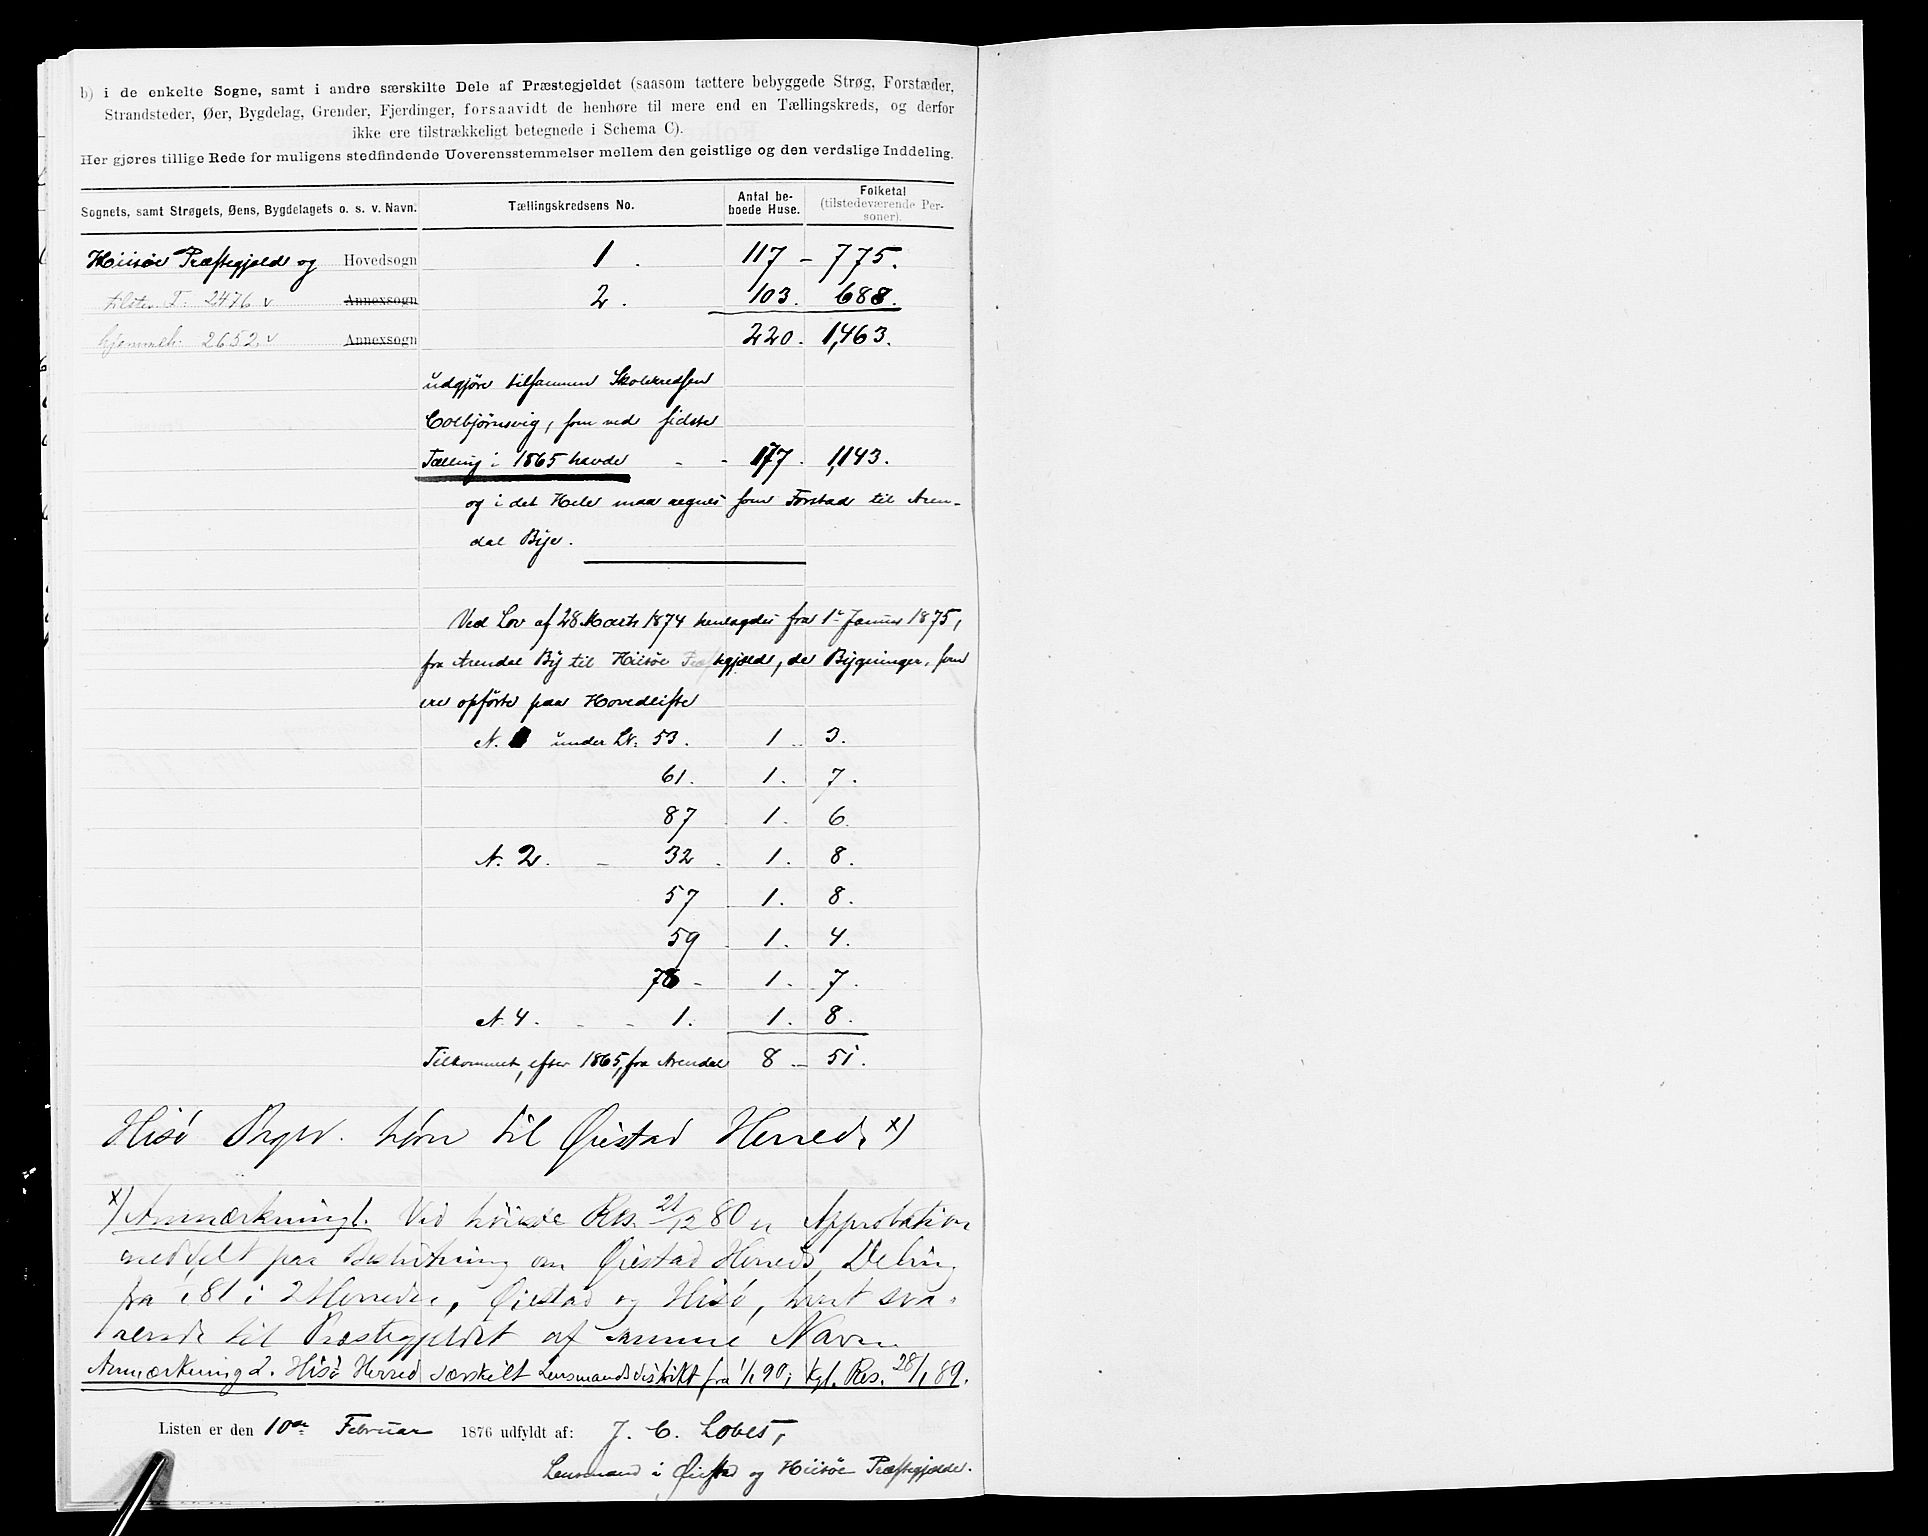 b) i de enkelte Sogne, samt i andre særskilte Dele af Præstegjeldet (saasom tættere bebyggede Strøg, Forstæder,
Strandsteder, Øer, Bygdelag, Grender, Fjerdinger, forsaavidt de henhøre til mere end en Tællingskreds, og derfor
ikke ere tilstrækkeligt betegnede i Schema C).
Her gjøres tillige Rede for muligens stedfindende Uoverensstemmelser mellem den geistlige og den verdslige Inddeling.
Sognets, samt Strøgets, Øens, Bygdelagets o. s. v. Navn. Tællingskredsens No. Antal be-boede Huse. Folketal (tilstedeværende Per-soner).
Hiisøe Præstegjeld og Hovedsogn 1. 117 - 775.
tilstev. F. 2476 v Annexsogn 2. 103. 688.
hjemmeh. 2652 v Annexsogn 220. 1,463.
udgjøre tilsammen Skolekredsen
Colbjørnsvig, som ved sidste
Tælling i 1865 havde - - 177. 1,143.
og i det Hele maa regnes som Forstad til Aren-
dal Bye.
Ved Lov af 28 Marts 1874 henlagdes fra 1ste Januar 1875,
fra Arendal By til Hiisøe Præstegjeld, de Bygninger, som
ere opførte paa Hovedliste
N. 1 under LN. 53. 1 - 3.
61. 1. 7.
87 1. 6.
N. 2. - 32. 1. 8.
57 1. 8.
59 1. 4.
78 - 1. 7.
N. 4. - - 1. 1. 8.
Tilkommet, efter 1865, fra Arendal 8 - 51.
Hisö Prgld. hører til Øiestad Herred. x)
x) Anmærkning 1. Ved høieste Res. 21/12 80 er Approbation
meddelt paa Beslutning om Øiestad Herreds Deling
fra 1/1 81 i 2 Herreder, Øiestad og Hisö, hvert sva-
rende til Præstegjeldet af samme Navn.
Anmærkning 2. Hisö Herred særskilt Lensmandsdistrikt fra 1/1 90; kgl. Res. 28/1 89.
Listen er den 10de Februar 1876 udfyldt af: J. C. Lobes,
Lensmand i Øiestad og Hiisøe Præstegjelde.